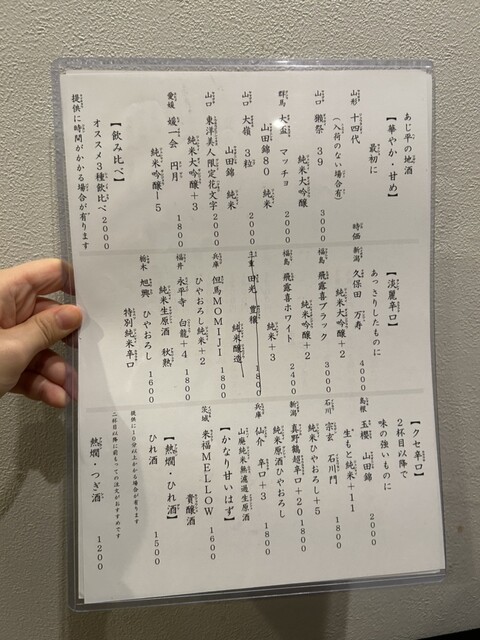 あじ平の地酒
【華やか・甘め】
最初に
山形 十四代 時価
(入荷のない場合有)
山口 獺祭 39
純米大吟醸 3000
群馬 大盃 マッチョ
山田錦80 純米 2000
山口 大嶺 3粒
山田錦 純米 2000
山口 東洋美人限定花文字
純米大吟醸+3 2000
愛媛 媛一会 円月
純米吟醸-5 1800
【飲み比べ】
オススメ3種飲比べ2000
提供に時間がかかる場合が有ります
【淡麗辛口】
あっさりしたものに
新潟 久保田 万寿
純米大吟醸+2 4000
福島 飛露喜ブラック
純米吟醸+2 3000
福島 飛露喜ホワイト
純米+3 2400
三重 田光 雪穣
純米醸造 1800
兵庫 但馬MOMIJI
ひやおろし純米+2 1800
福井 永平寺 白龍+4
純米生原酒 秋熟 1800
栃木 旭興 ひやおろし
特別純米辛口 1600
【クセ辛口】
2杯目以降で
味の強いものに
島根 玉櫻 山田錦
生もと純米+11 2000
石川 宗玄 石川門
純米ひやおろし+5 1800
新潟 真野鶴超辛口+20 1800
純米原酒ひやおろし
兵庫 仙介 辛口+3
山廃純米無濾過生原酒 1800
【かなり甘いはず】
茨城 来福MELLOW
貴醸酒 1600
【熱燗・ひれ酒】
ひれ酒 1500
提供に10分以上かかる場合が有ります
二杯目以降に前もっての注文がおすすめです
熱燗・つぎ酒 1200